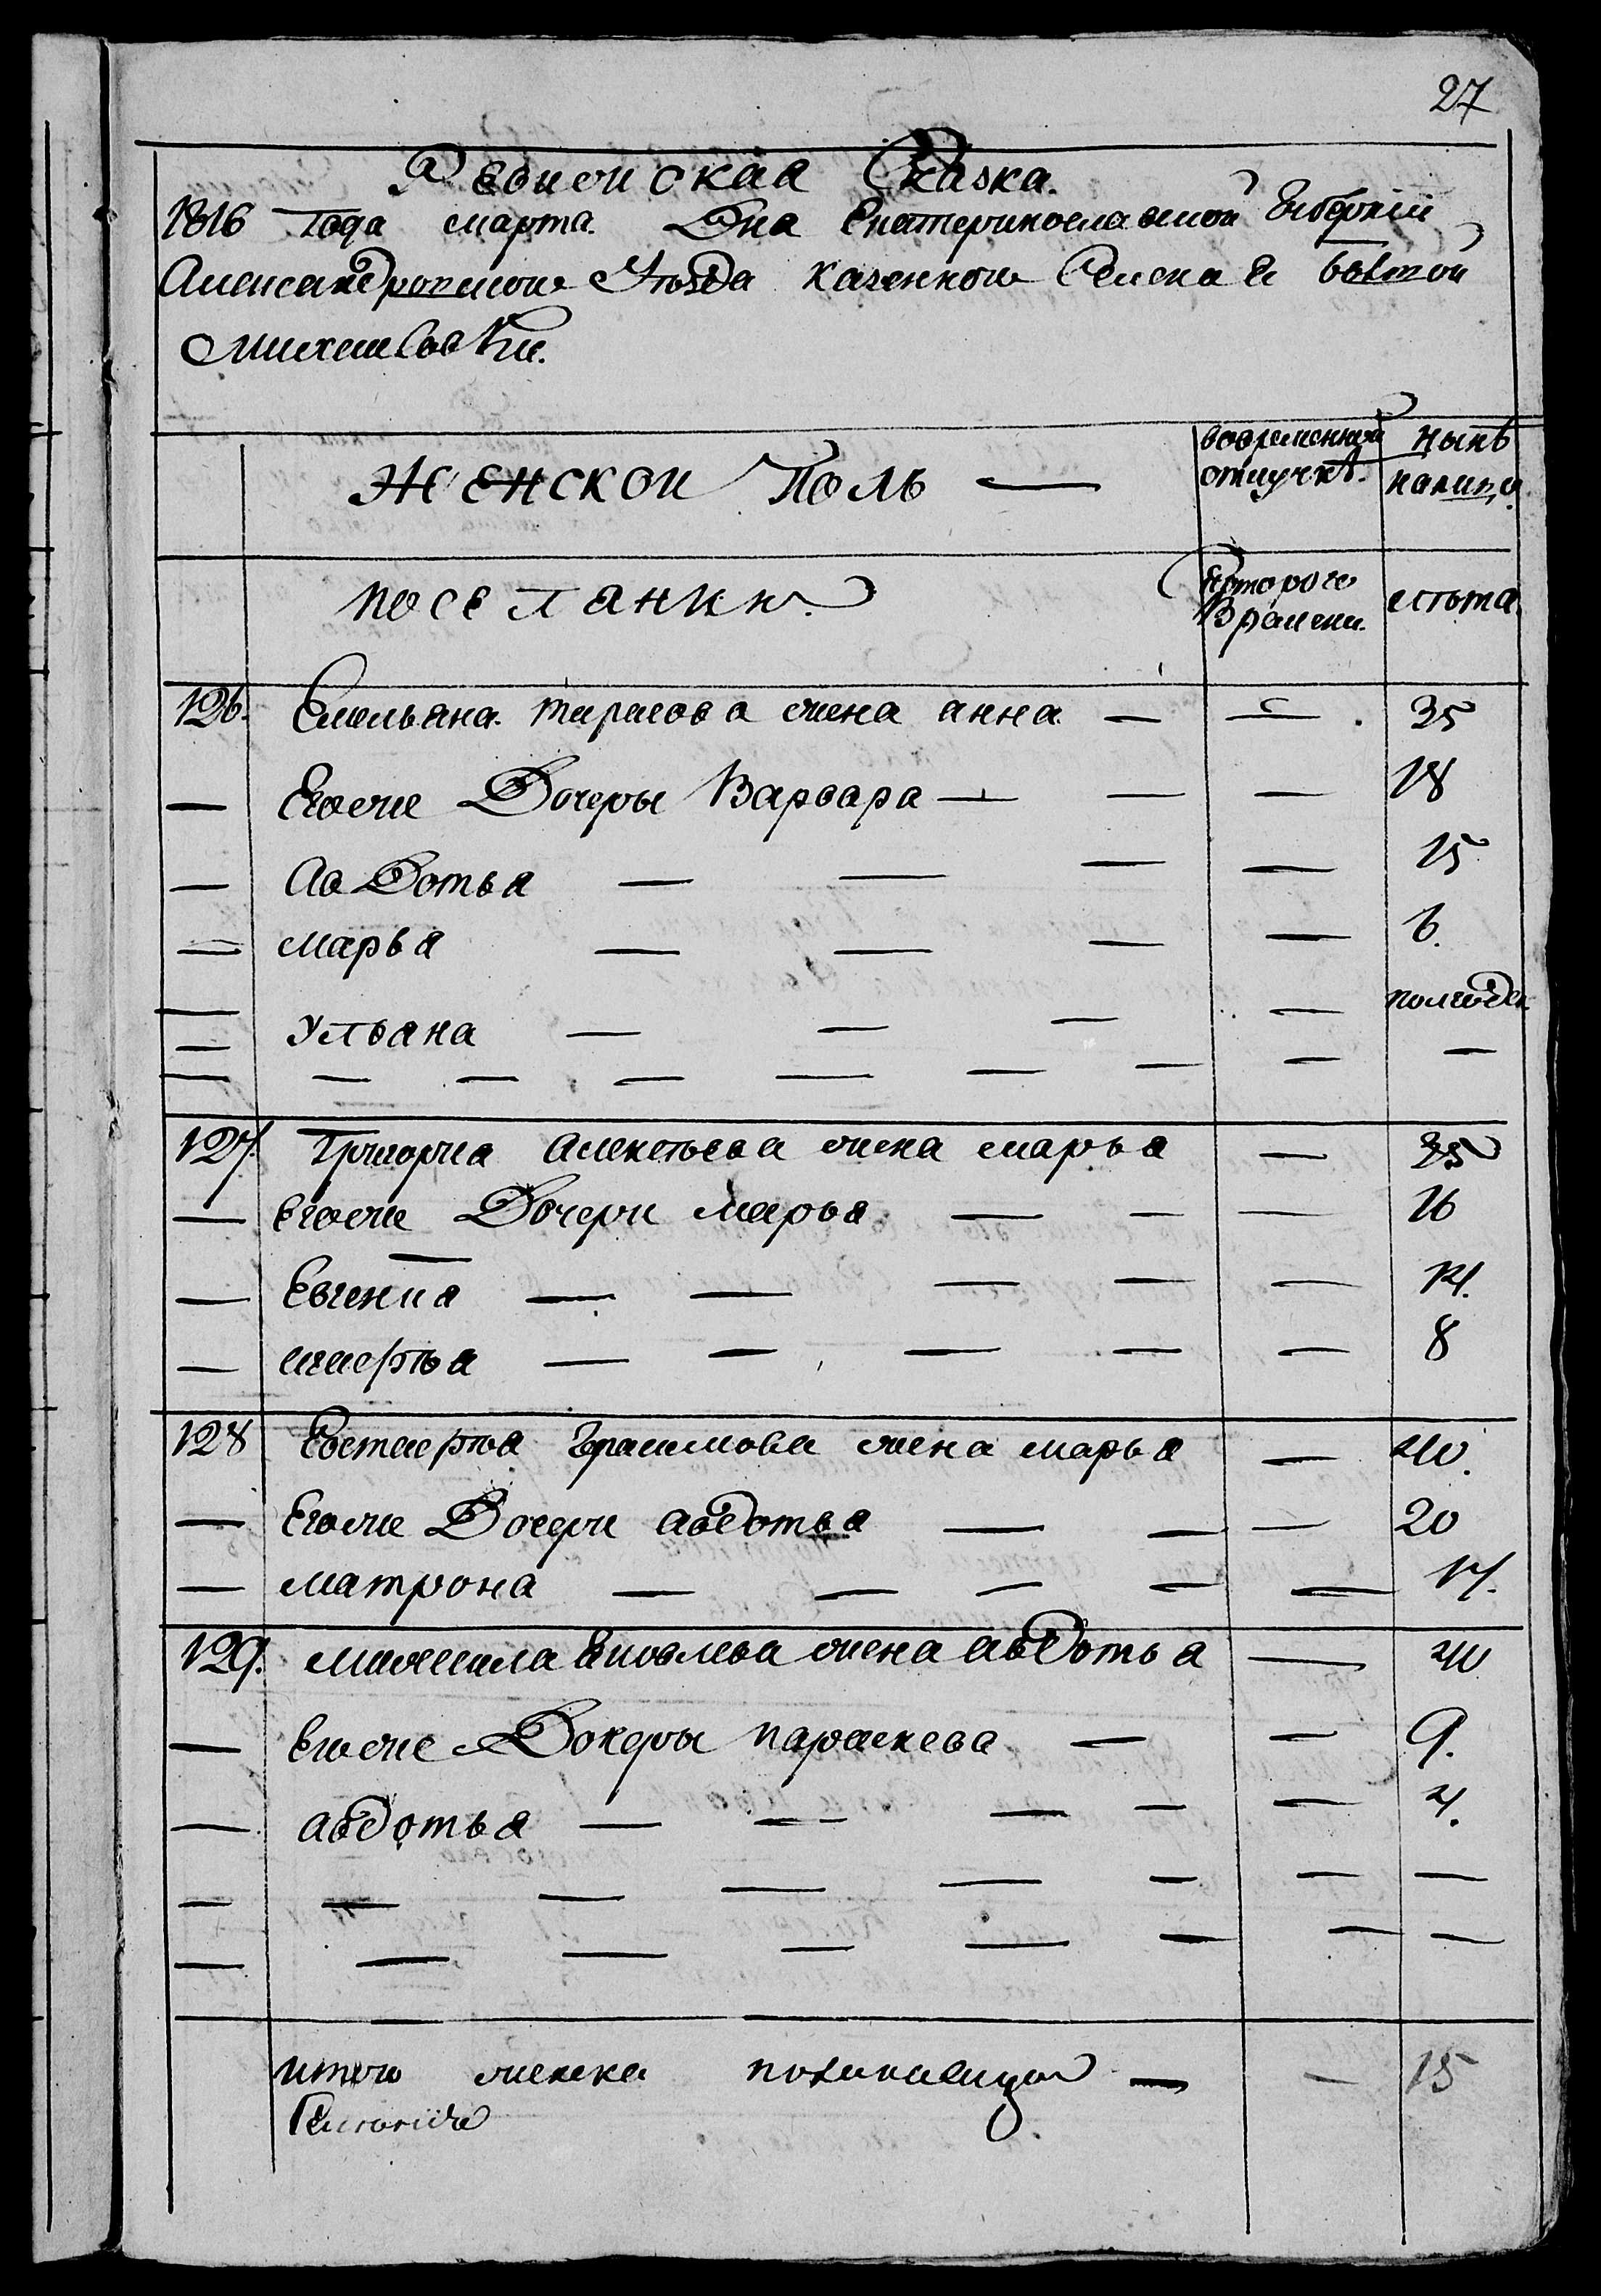 27
Ревизская Сказка.
1816 года марта Дня Екатеринославской Губернии
Александровского Уезда казенного Селения
Михайловки.
Женской Полъ —
во временной отлучкѣ.
нынѣ налицо
поселянки.
Скоторого времени.
лѣта
126. Емельяна Тарасова жена анна — — 35
— Егоже Дочеры Варвара — — — 18
— Авдотья — — — — 15
— марья — — — — 6.
— Ульяна — — — — полгода
— — — — — — — — —
127. Григория Алексѣева жена марья — 35
— Егоже Дочери марья — — — 16
— Евгения — — — — — 14.
— — — — — — 8
128 Евстафья Герасимова жена марья — 40.
— Егоже Дочери авдотья — — — 20
— матрона — — — — — 14.
129. михайла Яковлева жена авдотья — 40
— Егоже Дочеры параскева — — 9.
— авдотья — — — — — 4.
— — — — — — — —
— — — — — — — —
итого женска полу налицо — — 15